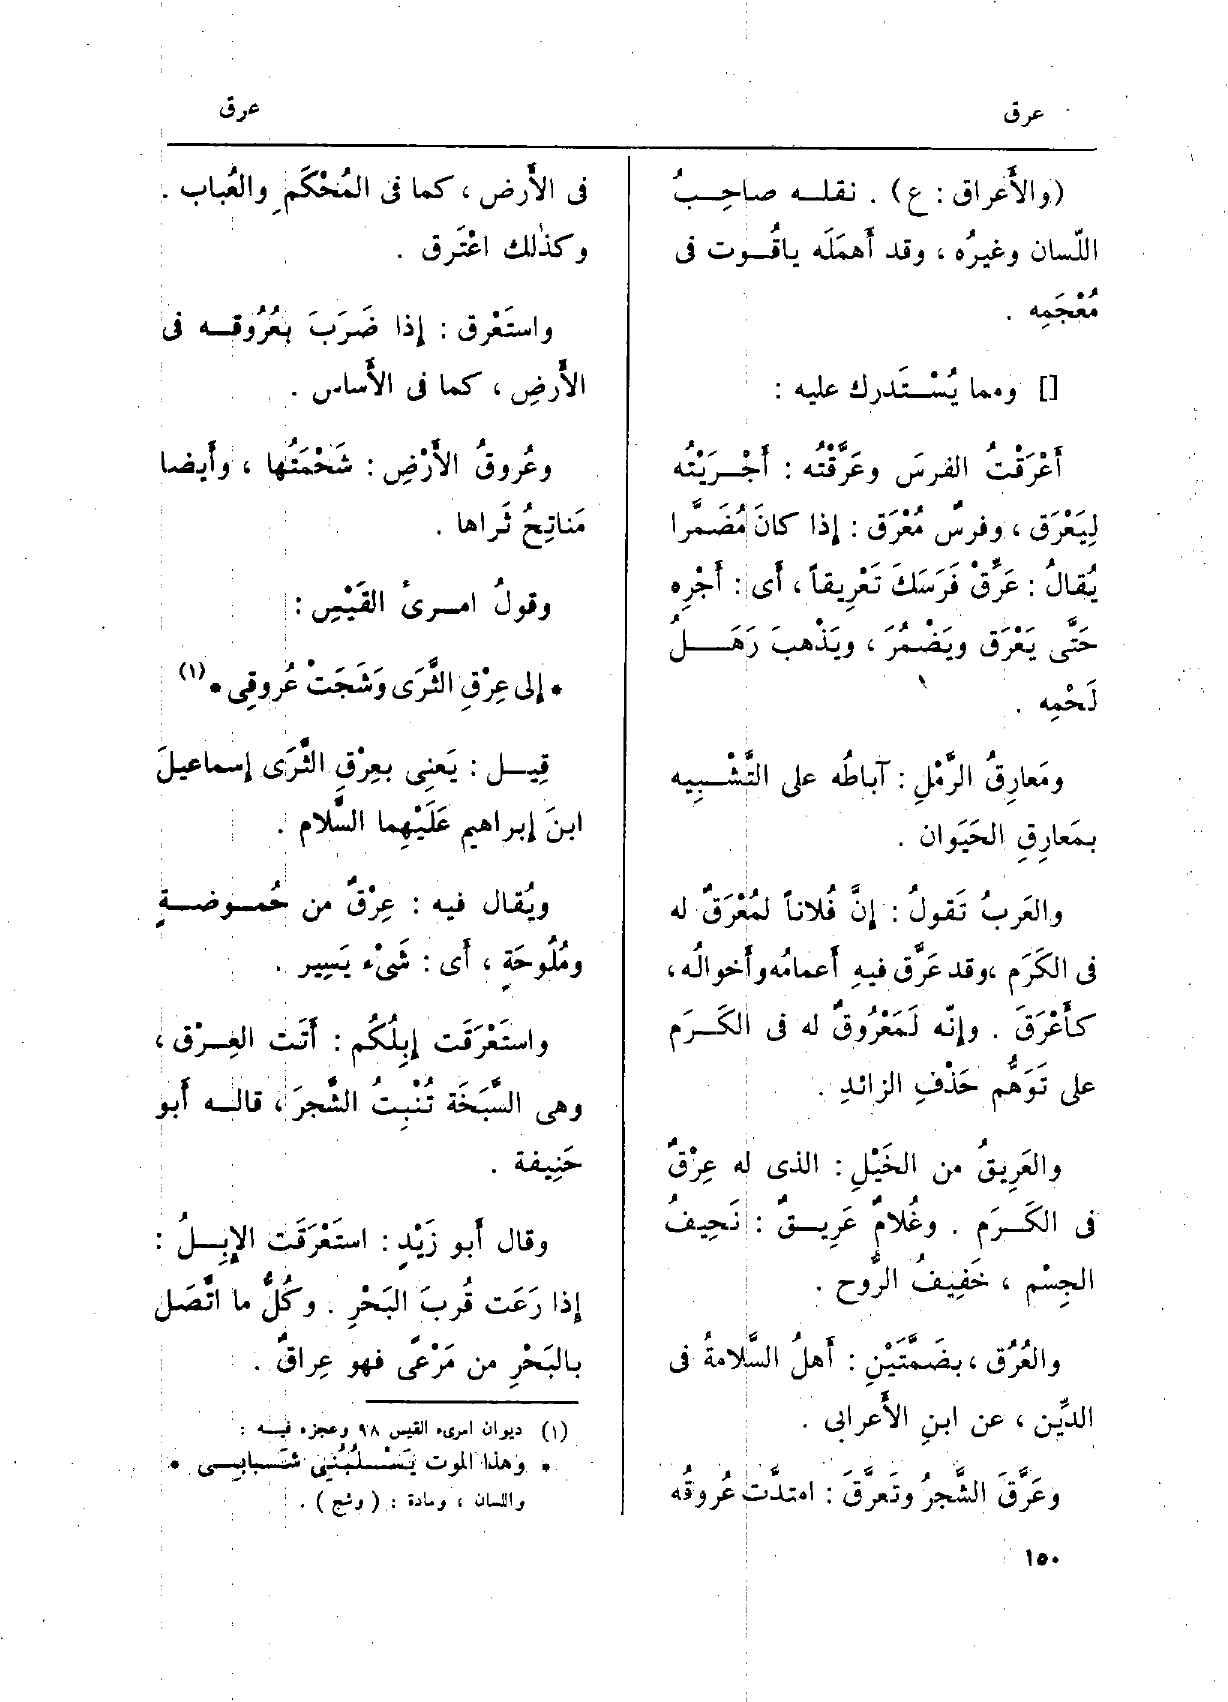 عرق
عرق
(والأَعراق : ع) . نقلـه صاحِـبُ
اللّسان وغيرُه ، وقد أَهمَلَه ياقُـوت فى
مُعْجَمِه .
[] ومما يُسْـتَدرك عليه :
أَعْرَقْتُ الفرسَ وعَرَّقْتُه : أَجْـرَيْتُه
لِيَعْرَق ، وفرسٌ مُعْرَق : إذا كانَ مُضَمَّرا
يُقالُ : عَرِّقْ فَرَسَكَ تَعْرِيقاً ، أَى : أَجْرِه
حَتَّى يَعْرَق ويَضْمُرَ ، ويَذْهبَ رَهَـلُ
لَحْمِه .
ومَعارِقُ الرَّمْلِ : آباطُه على التَّشْـبِيه
بمَعارِقِ الحَيَوان .
والعَربُ تَقولُ : إنَّ فُلاناً لمُعْرَقٌ له
فى الكَرَم ، وقد عَرَّق فيهِ أَعمامُه وأَخوالُه ،
كأَعْرَقَ . وإنّه لَمَعْرُوقٌ له فى الكَـرَم
على تَوَهُّم حَذْفِ الزائدِ .
والعَرِيقُ من الخَيْلِ : الذى له عِرْقٌ
فى الكَـرَم . وغُلامٌ عَرِيـقٌ : نَحِيفُ
الجِسْم ، خَفِيفُ الرُّوح .
والعُرُق ، بضَمَّتَيْنِ : أَهلُ السَّلامةُ فى
الدِّين ، عن ابنِ الأَعرابى .
وعَرَّقَ الشَّجرُ وتَعرَّقَ : امتدَّت عُروقُه
فى الأَرض ، كما فى المُحْكَمِ والعُباب .
وكذٰلك اعْتَرق .
واستَعْرق : إذا ضَرَبَ بعُرُوقـه فى
الأَرضِ ، كما فى الأَساس .
وعُروقُ الأَرْضِ : شَحْمَتُها ، وأَيضا
مَناتِحُ ثَراها .
وقولُ امـرىُ القَيْسِ :
* إلى عِرْقِ الثَّرَى وَشَجَتْ عُروقِى * (١)
قِيـل : يَعنِى بعِرْقِ الثَّرَى إسماعيلَ
ابنَ إبراهيم عَلَيْهِما السَّلام .
ويُقال فيه : عِرْقٌ من حُمـوضـةٍ
ومُلُوحَةٍ ، أَى : شَىْء يَسِير .
واستَعْرَقَت إبِلُكُم : أَتَت العِـرْق ،
وهى السَّبَخَة تُنْبِتُ الشَّجرَ ، قالـه أَبو
حَنِيفة .
وقال أَبو زَيْدٍ : استَعْرَقَت الإبِـلُ :
إذا رَعَت قُربَ البَحْرِ . وكُلُّ ما اتَّصَل
بالبَحْرِ من مَرْعًى فهو عِراقٌ .
(١) ديوان امرىء القيس ٩٨ وعجزه فيـه :
* وهذا الموت يَسْـلُبُنِي شَـبابِـى *
واللسان ، ومادة : (وشج) .
١٥٠